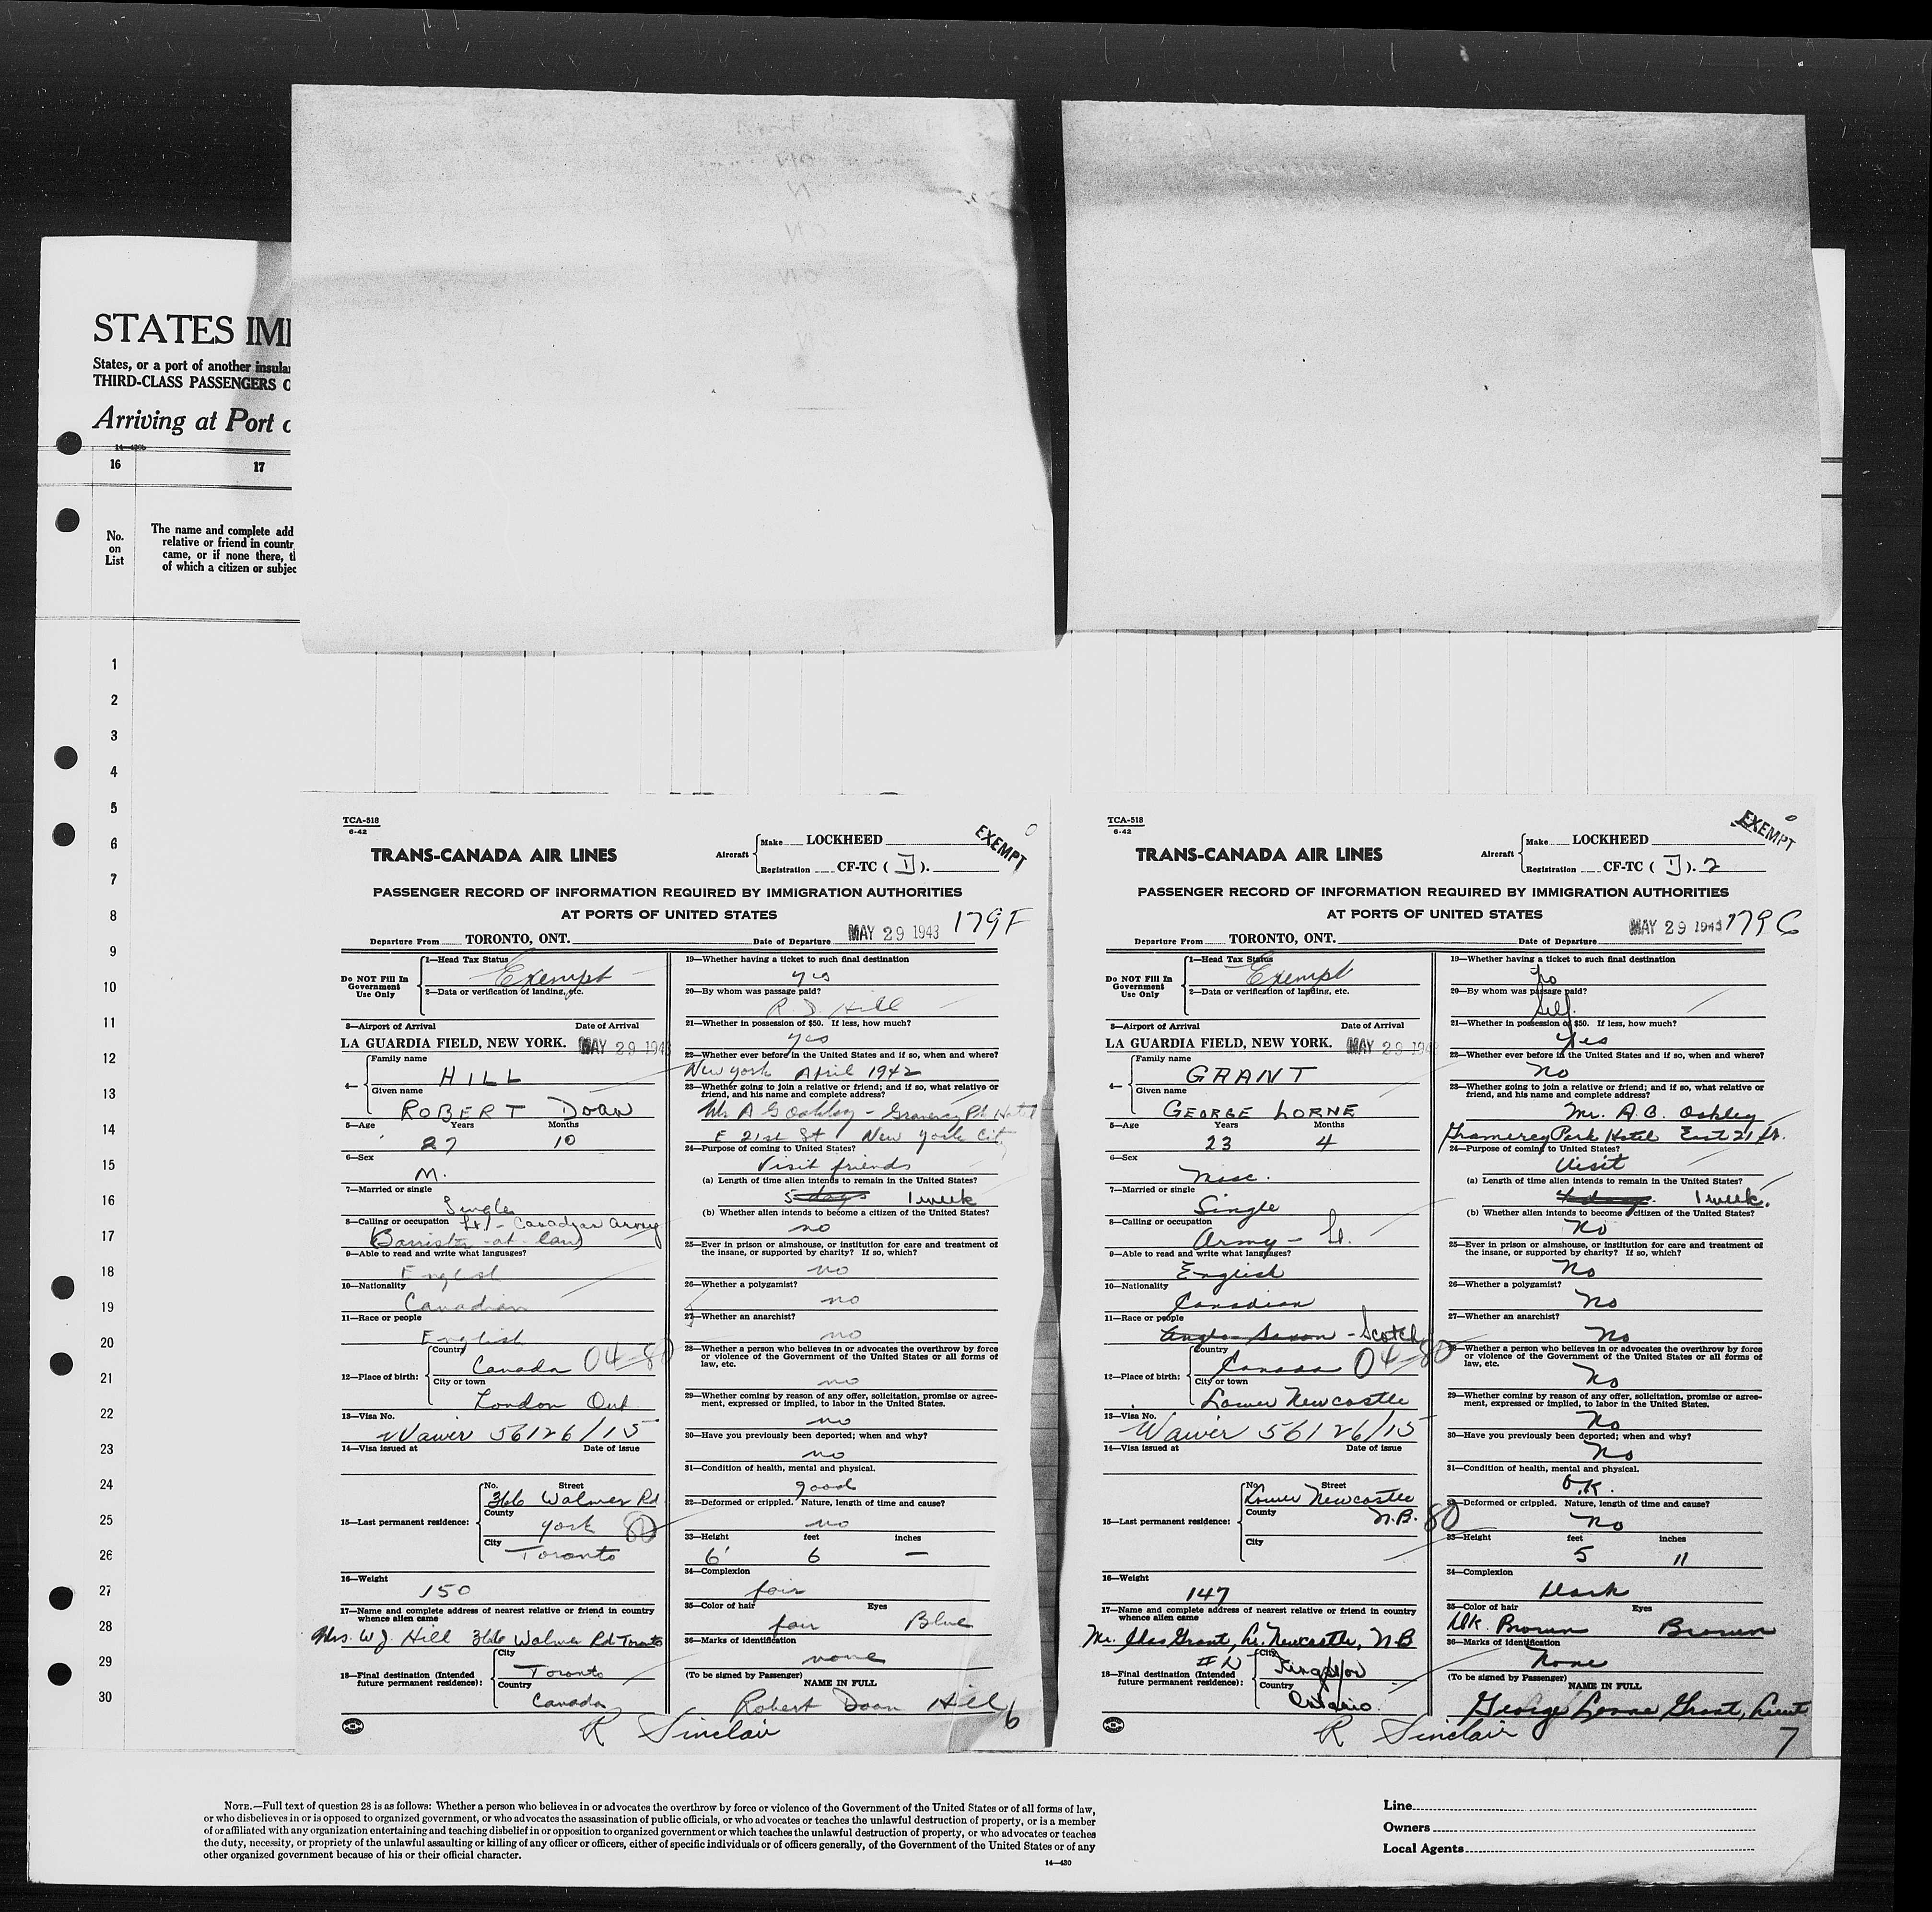 STATES IMI
States, or a port of another insula
THIRD-CLASS PASSENGERS O
Arriving at Port o
16 17
No. on List
The name and complete add
relative or friend in countr
came, or if none there, t
of which a citizen or subjec
1
2
3
4
5
6
7
8
9
10
11
12
13
14
15
16
17
18
19
20
21
22
23
24
25
26
27
28
29
30
TCA-518
6-42
TRANS-CANADA AIR LINES
Aircraft
Make LOCKHEED
Registration CF-TC ( D ).
EXEMPT
PASSENGER RECORD OF INFORMATION REQUIRED BY IMMIGRATION AUTHORITIES
AT PORTS OF UNITED STATES
179F
Departure From TORONTO, ONT. Date of Departure MAY 29 1943
Do NOT Fill In
Government
Use Only
1—Head Tax Status
Exempt
2—Data or verification of landing, etc.
3—Airport of Arrival Date of Arrival
LA GUARDIA FIELD, NEW YORK. MAY 29 194
4—
Family name
HILL
Given name
ROBERT Doan
5—Age Years Months
27 10
6—Sex
M.
7—Married or single
Single
8—Calling or occupation Lt - Canadian army
Barrister-at-law
9—Able to read and write what languages?
English
10—Nationality
Canadian
11—Race or people
English
12—Place of birth:
Country
Canada 04-80
City or town
London Ont
13—Visa No.
Waiver 56126/15
14—Visa issued at Date of issue
15—Last permanent residence:
No. Street
366 Walmer Rd
County
York 80
City
Toronto
16—Weight
150
17—Name and complete address of nearest relative or friend in country
whence alien came
Mrs. W J. Hill 366 Walmer Rd Toronto
18—Final destination (Intended
future permanent residence):
City
Toronto
Country
Canada
R Sinclair
19—Whether having a ticket to such final destination
yes
20—By whom was passage paid?
R. D. Hill
21—Whether in possession of $50. If less, how much?
yes
22—Whether ever before in the United States and if so, when and where?
New York April 1942
23—Whether going to join a relative or friend; and if so, what relative or
friend, and his name and complete address?
Mr A G Oakley - Gramercy Pk Hotel
E 21st St New York City
24—Purpose of coming to United States?
Visit friends
(a) Length of time alien intends to remain in the United States?
5 days 1 week
(b) Whether alien intends to become a citizen of the United States?
no
25—Ever in prison or almshouse, or institution for care and treatment of
the insane, or supported by charity? If so, which?
no
26—Whether a polygamist?
no
27—Whether an anarchist?
no
28—Whether a person who believes in or advocates the overthrow by force
or violence of the Government of the United States or all forms of
law, etc.
no
29—Whether coming by reason of any offer, solicitation, promise or agree-
ment, expressed or implied, to labor in the United States.
no
30—Have you previously been deported; when and why?
no
31—Condition of health, mental and physical.
good
32—Deformed or crippled. Nature, length of time and cause?
no
33—Height feet inches
6' 6 —
34—Complexion
fair
35—Color of hair Eyes
fair Blue
36—Marks of identification
none
(To be signed by Passenger) NAME IN FULL
Robert Doan Hill
6
TCA-518
6-42
TRANS-CANADA AIR LINES
Aircraft
Make LOCKHEED
Registration CF-TC ( D ). 2
EXEMPT
PASSENGER RECORD OF INFORMATION REQUIRED BY IMMIGRATION AUTHORITIES
AT PORTS OF UNITED STATES
Departure From TORONTO, ONT. Date of Departure MAY 29 1943
Do NOT Fill In
Government
Use Only
1—Head Tax Status
Exempt
2—Data or verification of landing, etc.
3—Airport of Arrival Date of Arrival
LA GUARDIA FIELD, NEW YORK. MAY 29 194
4—
Family name
GRANT
Given name
GEORGE LORNE
5—Age Years Months
23 4
6—Sex
7—Married or single
Single
8—Calling or occupation
Army - Lt.
9—Able to read and write what languages?
English
10—Nationality
Canadian
11—Race or people
Anglo Saxon - Scotch
12—Place of birth:
Country
Canada 04-80
City or town
Lower Newcastle
13—Visa No.
Waiver 56126/15
14—Visa issued at Date of issue
15—Last permanent residence:
No. Street
Lower Newcastle
County N.B. 80
City
16—Weight
147
17—Name and complete address of nearest relative or friend in country
whence alien came
Mr. Chas Grant, Lr. Newcastle, N.B
18—Final destination (Intended
future permanent residence):
City
Kingston
Country
Ontario
R Sinclair
19—Whether having a ticket to such final destination
20—By whom was passage paid?
Self.
21—Whether in possession of $50. If less, how much?
Yes
22—Whether ever before in the United States and if so, when and where?
No
23—Whether going to join a relative or friend; and if so, what relative or
friend, and his name and complete address?
Mr. A.G. Oakley
Gramercy Park Hotel East 21 St.
24—Purpose of coming to United States?
Visit
(a) Length of time alien intends to remain in the United States?
1 week.
(b) Whether alien intends to become a citizen of the United States?
No
25—Ever in prison or almshouse, or institution for care and treatment of
the insane, or supported by charity? If so, which?
No
26—Whether a polygamist?
No
27—Whether an anarchist?
No
28—Whether a person who believes in or advocates the overthrow by force
or violence of the Government of the United States or all forms of
law, etc.
No
29—Whether coming by reason of any offer, solicitation, promise or agree-
ment, expressed or implied, to labor in the United States.
No
30—Have you previously been deported; when and why?
No
31—Condition of health, mental and physical.
O.K.
32—Deformed or crippled. Nature, length of time and cause?
No
33—Height feet inches
5 11
34—Complexion
Dark
35—Color of hair Eyes
Dk. Brown Brown
36—Marks of identification
None
(To be signed by Passenger) NAME IN FULL
George Lorne Grant, Lieut
7
NOTE.—Full text of question 28 is as follows: Whether a person who believes in or advocates the overthrow by force or violence of the Government of the United States or of all forms of law,
or who disbelieves in or is opposed to organized government, or who advocates the assassination of public officials, or who advocates or teaches the unlawful destruction of property, or is a member
of or affiliated with any organization entertaining and teaching disbelief in or opposition to organized government or which teaches the unlawful destruction of property, or who advocates or teaches
the duty, necessity, or propriety of the unlawful assaulting or killing of any officer or officers, either of specific individuals or of officers generally, of the Government of the United States or of any
other organized government because of his or their official character.
14—430
Line
Owners
Local Agents